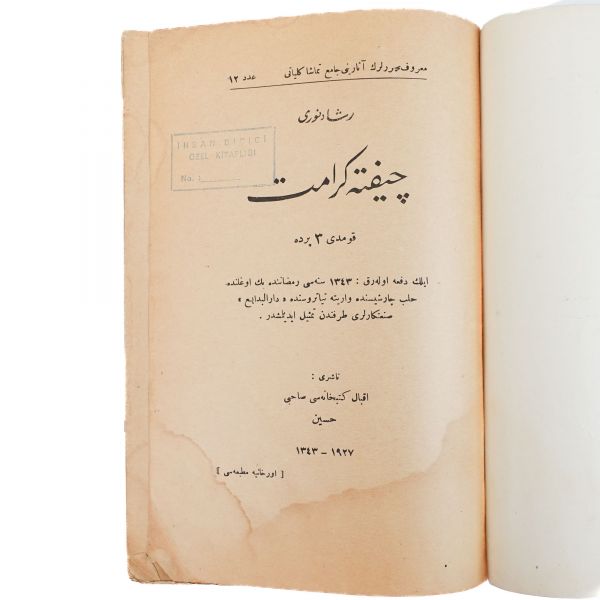 معروف محررلرك آثارینی جامع تماشا كلیاتی عدد ١٢
رشاد نوری
İHSAN DİCİCİ
ÖZEL KİTAPLIĞI
No. :
چیفته كرامت
قومدی ٣ پرده
ایلك دفعه اوله‌رق : ١٣٤٣ سنه‌سی رمضاننده بك اوغلنده
حلب چارشیسنده واریته تیاتروسنده « دارالبدایع »
صنعتكارلری طرفندن تمثیل ایدیلمشدر .
ناشری :
اقبال كتبخانه‌سی صاحبی
حسین
١٩٢٧ - ١٣٤٣
[ اورخانیه مطبعه‌سی ]